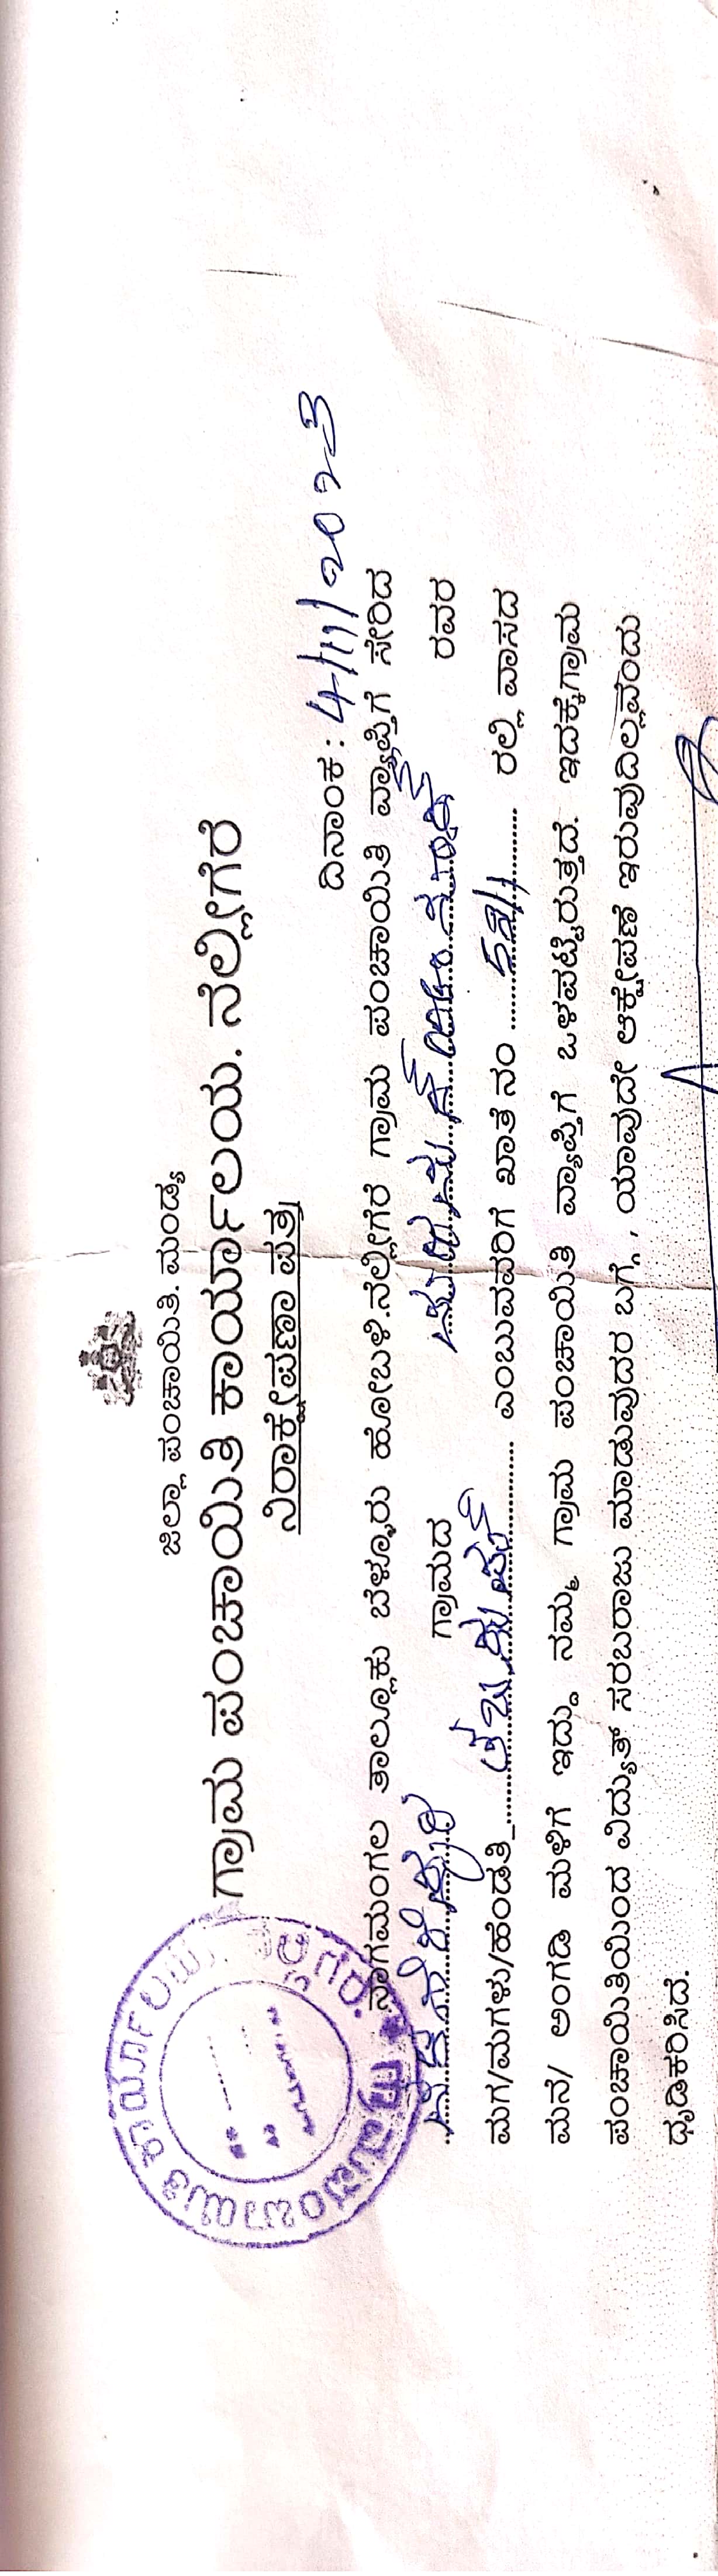 ಜಿಲ್ಲಾ ಪಂಚಾಯಿತಿ. ಮಂಡ್ಯ
ಗ್ರಾಮ ಪಂಚಾಯಿತಿ ಕಾರ್ಯಾಲಯ. ನಲ್ಲೀಗೆರೆ
ನಿರಾಕ್ಷೇಪಣಾ ಪತ್ರ
ದಿನಾಂಕ : 4/11/2023
ನಾಗಮಂಗಲ ತಾಲ್ಲೂಕು ಬೆಳ್ಳೂರು ಹೋಬಳಿ.ನಲ್ಲೀಗೆರೆ ಗ್ರಾಮ ಪಂಚಾಯಿತಿ ವ್ಯಾಪ್ತಿಗೆ ಸೇರಿದ
ಗ್ರಾಮದ ರವರ
ಮಗ/ಮಗಳು/ಹೆಂಡತಿ ಎಂಬುವವರಿಗೆ ಖಾತೆ ನಂ ರಲ್ಲಿ ವಾಸದ
ಮನೆ/ ಅಂಗಡಿ ಮಳಿಗೆ ಇದ್ದು ನಮ್ಮ ಗ್ರಾಮ ಪಂಚಾಯಿತಿ ವ್ಯಾಪ್ತಿಗೆ ಒಳಪಟ್ಟಿರುತ್ತದೆ. ಇದಕ್ಕೆಗ್ರಾಮ
ಪಂಚಾಯಿತಿಯಿಂದ ವಿದ್ಯುತ್ ಸರಬರಾಜು ಮಾಡುವುದರ ಬಗ್ಗೆ , ಯಾವುದೇ ಆಕ್ಷೇಪಣೆ ಇರುವುದಿಲ್ಲವೆಂದು
ಧೃಡಿಕರಿಸಿದೆ.
ಗ್ರಾಮಪಂಚಾಯಿತಿ ಕಾರ್ಯಾಲಯ